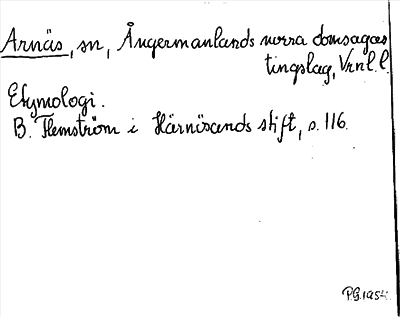 Arnäs, sn, Ångermanlands norra domsagas
tingslag, Vrnl. l.
Etymologi.
B. Flemström i Härnösands stift, s. 116.
P.G. 1954.